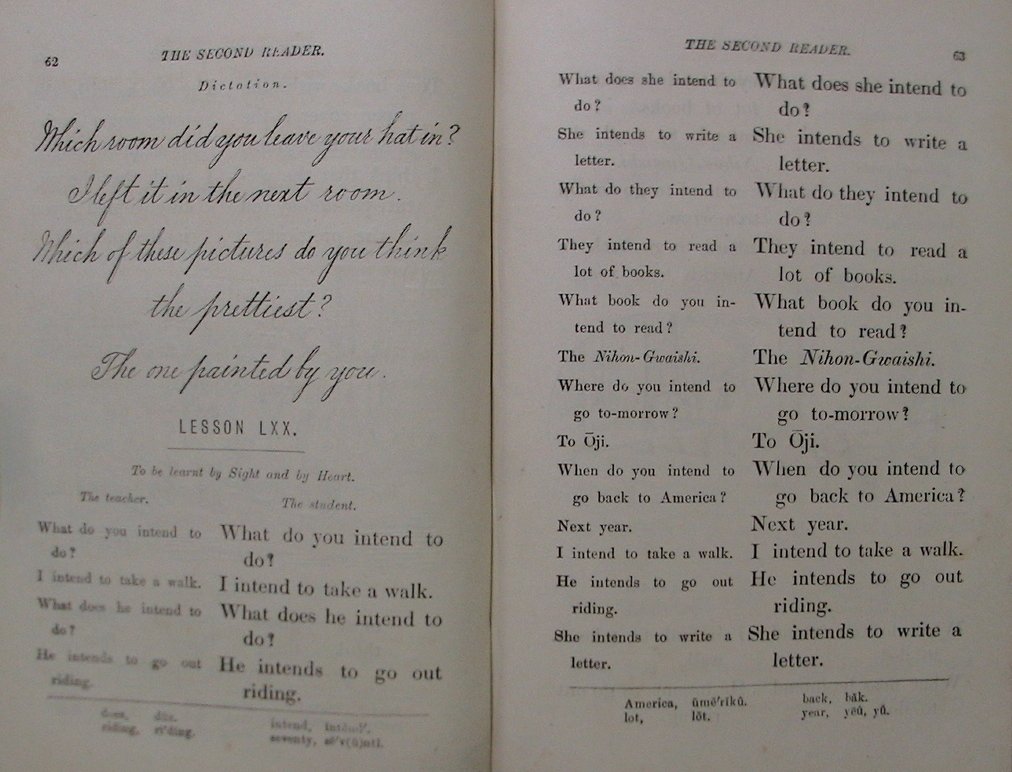 62
THE SECOND READER.
Dictation.
Which room did you leave your hat in?
I left it in the next room.
Which of these pictures do you think
the prettiest?
The one painted by you.
LESSON LXX.
To be learnt by Sight and by Heart.
The teacher.
The student.
What do you intend to
do?
I intend to take a walk.
What does he intend to
do?
He intends to go out
riding.
What do you intend to
do?
I intend to take a walk.
What does he intend to
do?
He intends to go out
riding.
does,
riding,
intend,
seventy,
THE SECOND READER.
63
What does she intend to
do?
She intends to write a
letter.
What do they intend to
do?
They intend to read a
lot of books.
What book do you in-
tend to read?
The Nihon-Gwaishi.
Where do you intend to
go to-morrow?
To Ōji.
When do you intend to
go back to America?
Next year.
I intend to take a walk.
He intends to go out
riding.
She intends to write a
letter.
What does she intend to
do?
She intends to write a
letter.
What do they intend to
do?
They intend to read a
lot of books.
What book do you in-
tend to read?
The Nihon-Gwaishi.
Where do you intend to
go to-morrow?
To Ōji.
When do you intend to
go back to America?
Next year.
I intend to take a walk.
He intends to go out
riding.
She intends to write a
letter.
America, ŭmĕ'rĭkŭ.
lot, lŏt.
back, băk.
year, yēŭ, yû.